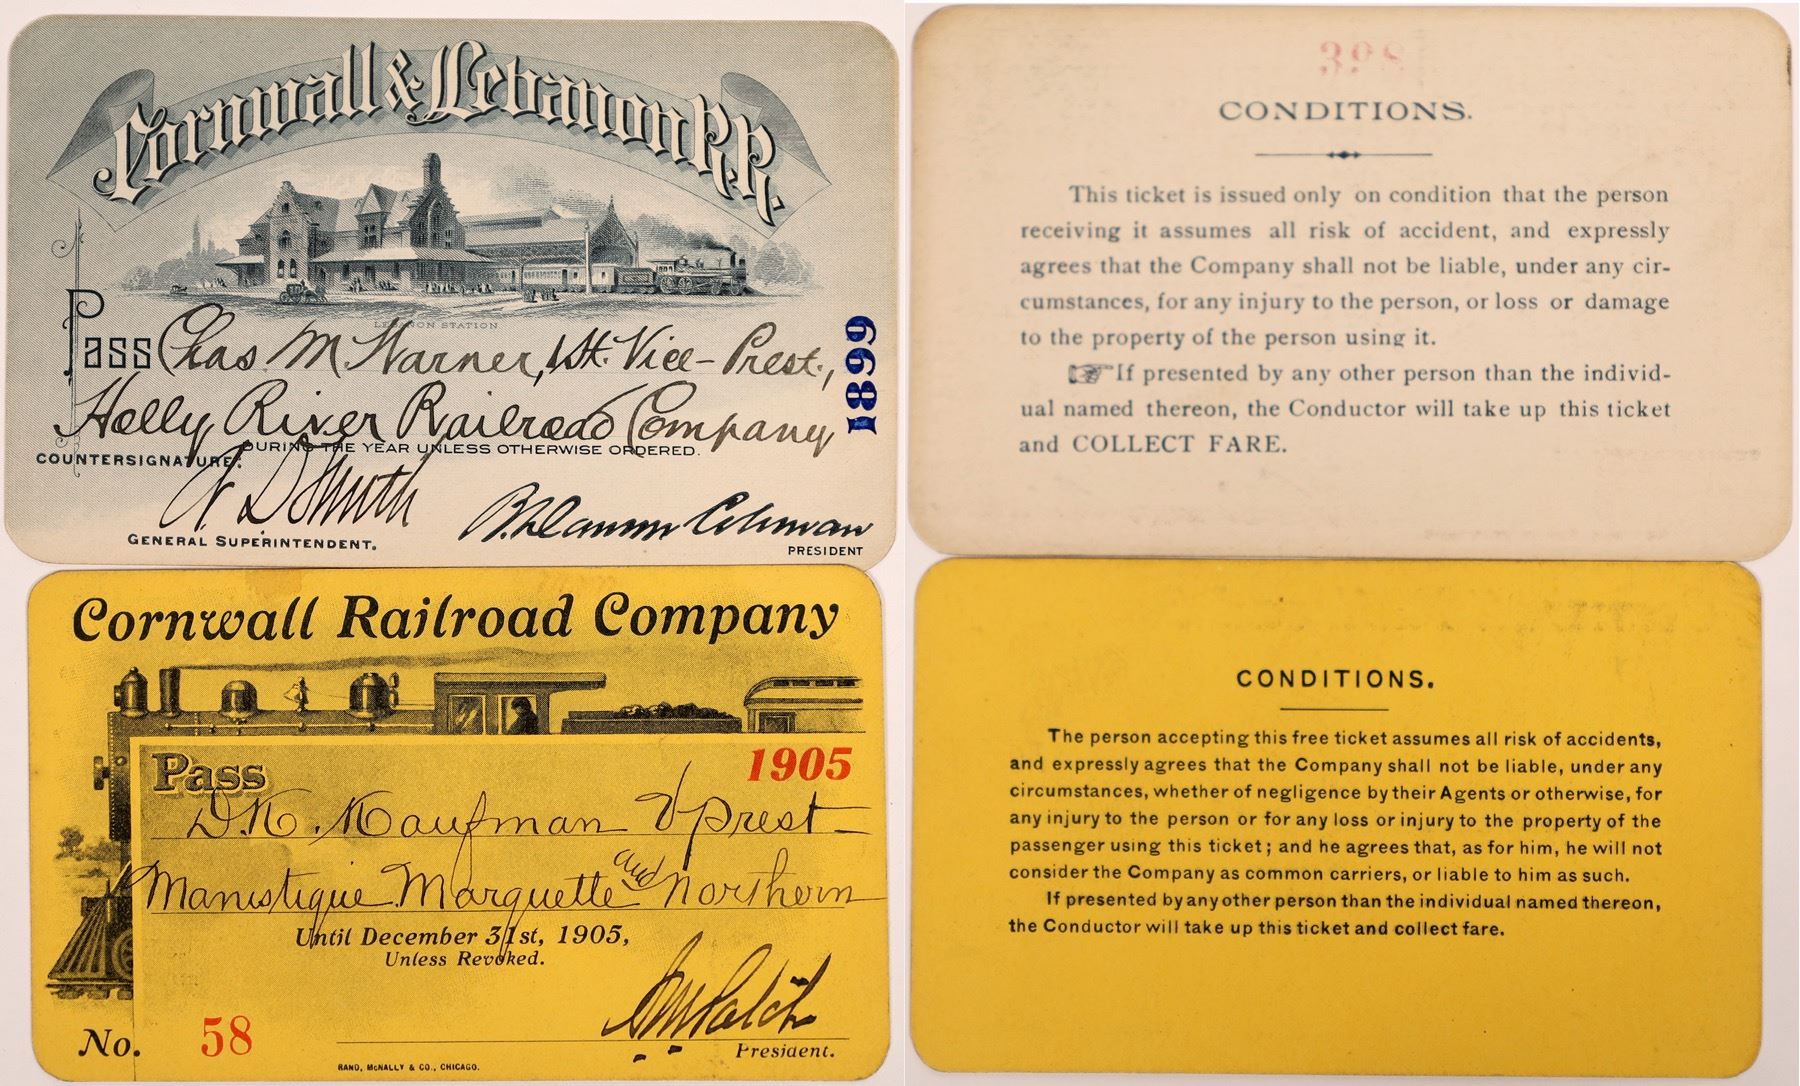 Cornwall & Lebanon R.R.
LEBANON STATION
Pass Chas. M. Warner, 1st. Vice-Prest.,
Holly River Railroad Company
1899
DURING THE YEAR UNLESS OTHERWISE ORDERED.
COUNTERSIGNATURE:
A D Smith
GENERAL SUPERINTENDENT.
B. Dawson Coleman
PRESIDENT
398
CONDITIONS.
This ticket is issued only on condition that the person
receiving it assumes all risk of accident, and expressly
agrees that the Company shall not be liable, under any cir-
cumstances, for any injury to the person, or loss or damage
to the property of the person using it.
☞ If presented by any other person than the individ-
ual named thereon, the Conductor will take up this ticket
and COLLECT FARE.
Cornwall Railroad Company
Pass
1905
D. K. Kaufman V Prest
Manistique Marquette and Northern
Until December 31st, 1905,
Unless Revoked.
No. 58
President.
RAND, McNALLY & CO., CHICAGO.
CONDITIONS.
The person accepting this free ticket assumes all risk of accidents,
and expressly agrees that the Company shall not be liable, under any
circumstances, whether of negligence by their Agents or otherwise, for
any injury to the person or for any loss or injury to the property of the
passenger using this ticket; and he agrees that, as for him, he will not
consider the Company as common carriers, or liable to him as such.
If presented by any other person than the individual named thereon,
the Conductor will take up this ticket and collect fare.